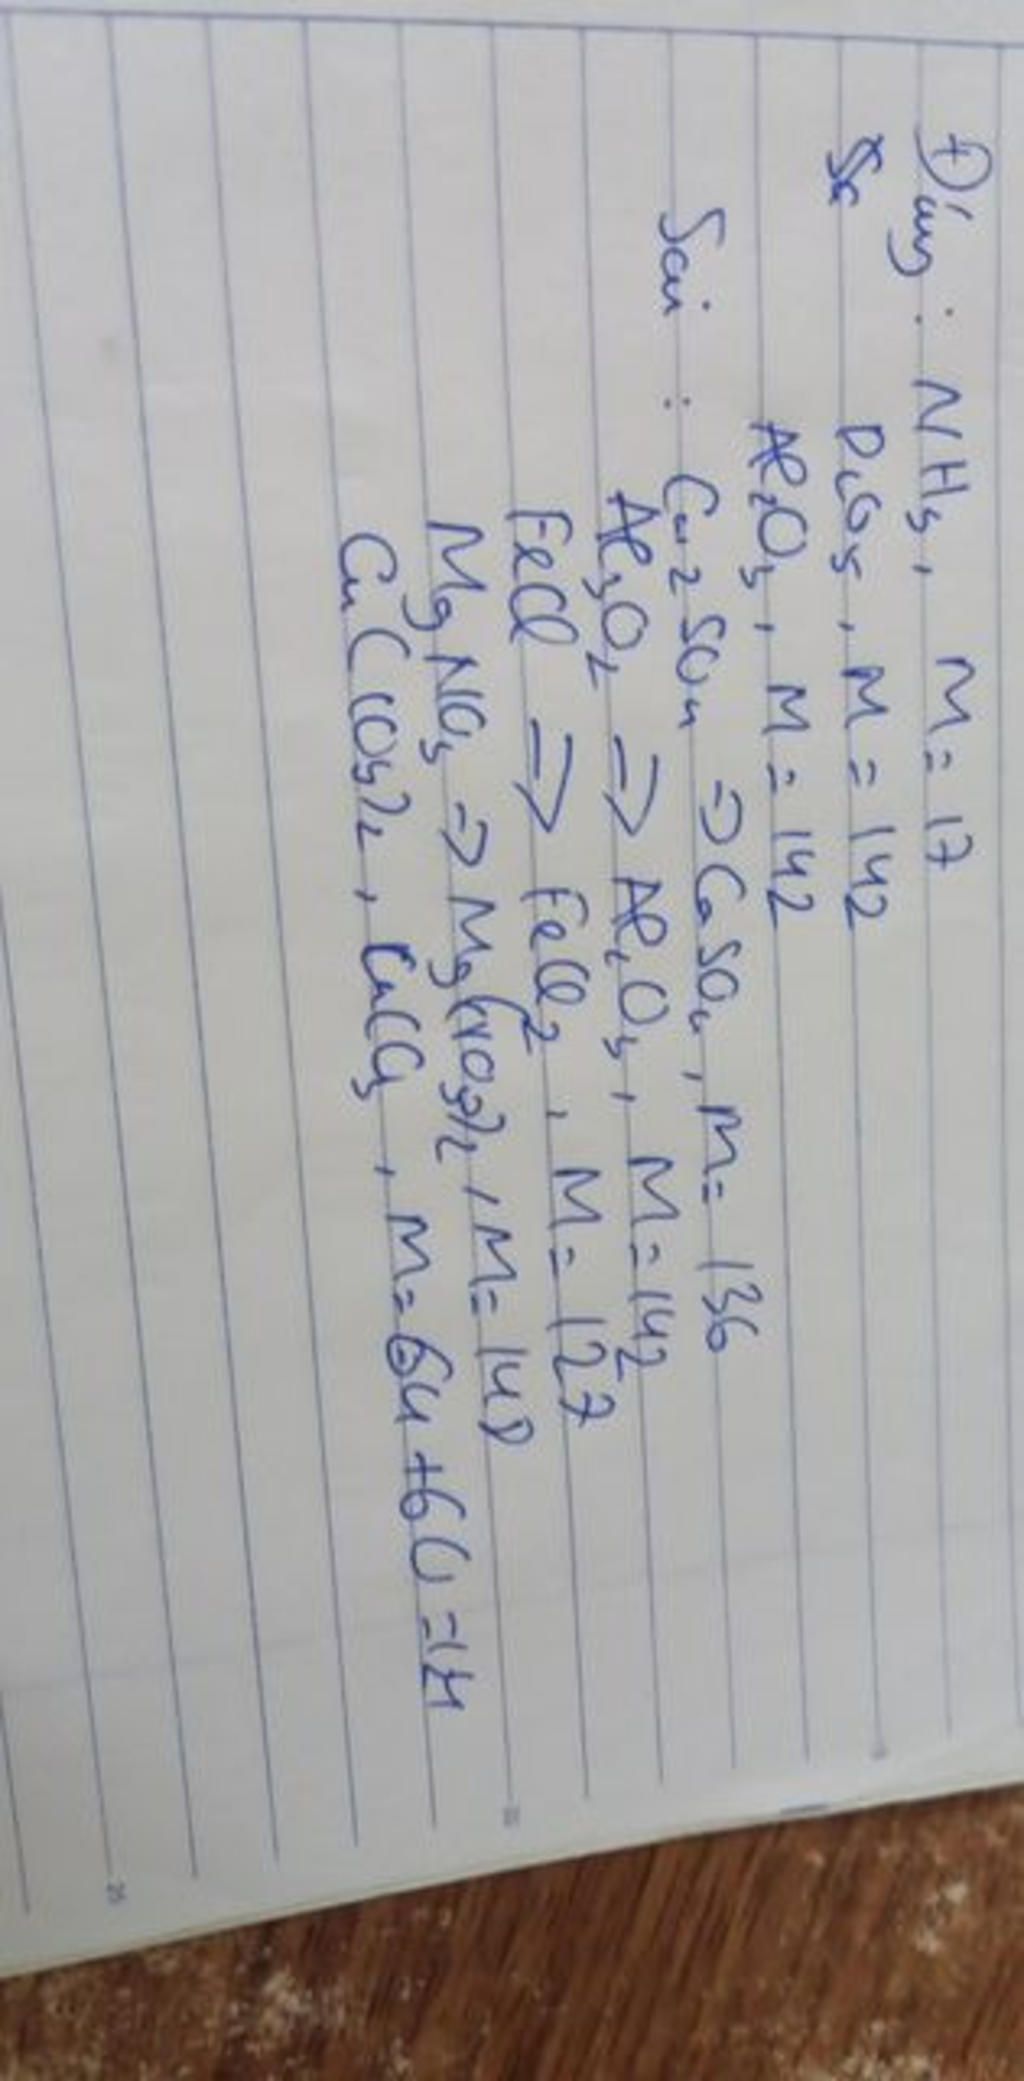 Đúng : NH3, M = 17
P2O5, M = 142
Al2O3, M = 142
Sai : Ca2SO4 => CaSO4, M = 136
Al3O2 => Al2O3, M = 142
FeCl => FeCl2, M = 127
MgNO3 => Mg(NO3)2, M = 148
Cu(CO3)2, CuCO3, M = 64 + 60 = 124